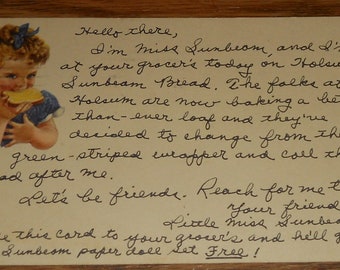 Hello there,
I'm Miss Sunbeam, and I'm
at your grocer's today on Holsum
Sunbeam Bread. The folks at
Holsum are now baking a be
than-ever loaf and they've
decided to change from the
green-striped wrapper and call th
ad after me.
Let's be friends. Reach for me t
Your friend
Little Miss Sunbea
e this card to your grocer's and he'll g
Sunbeam paper doll set Free!